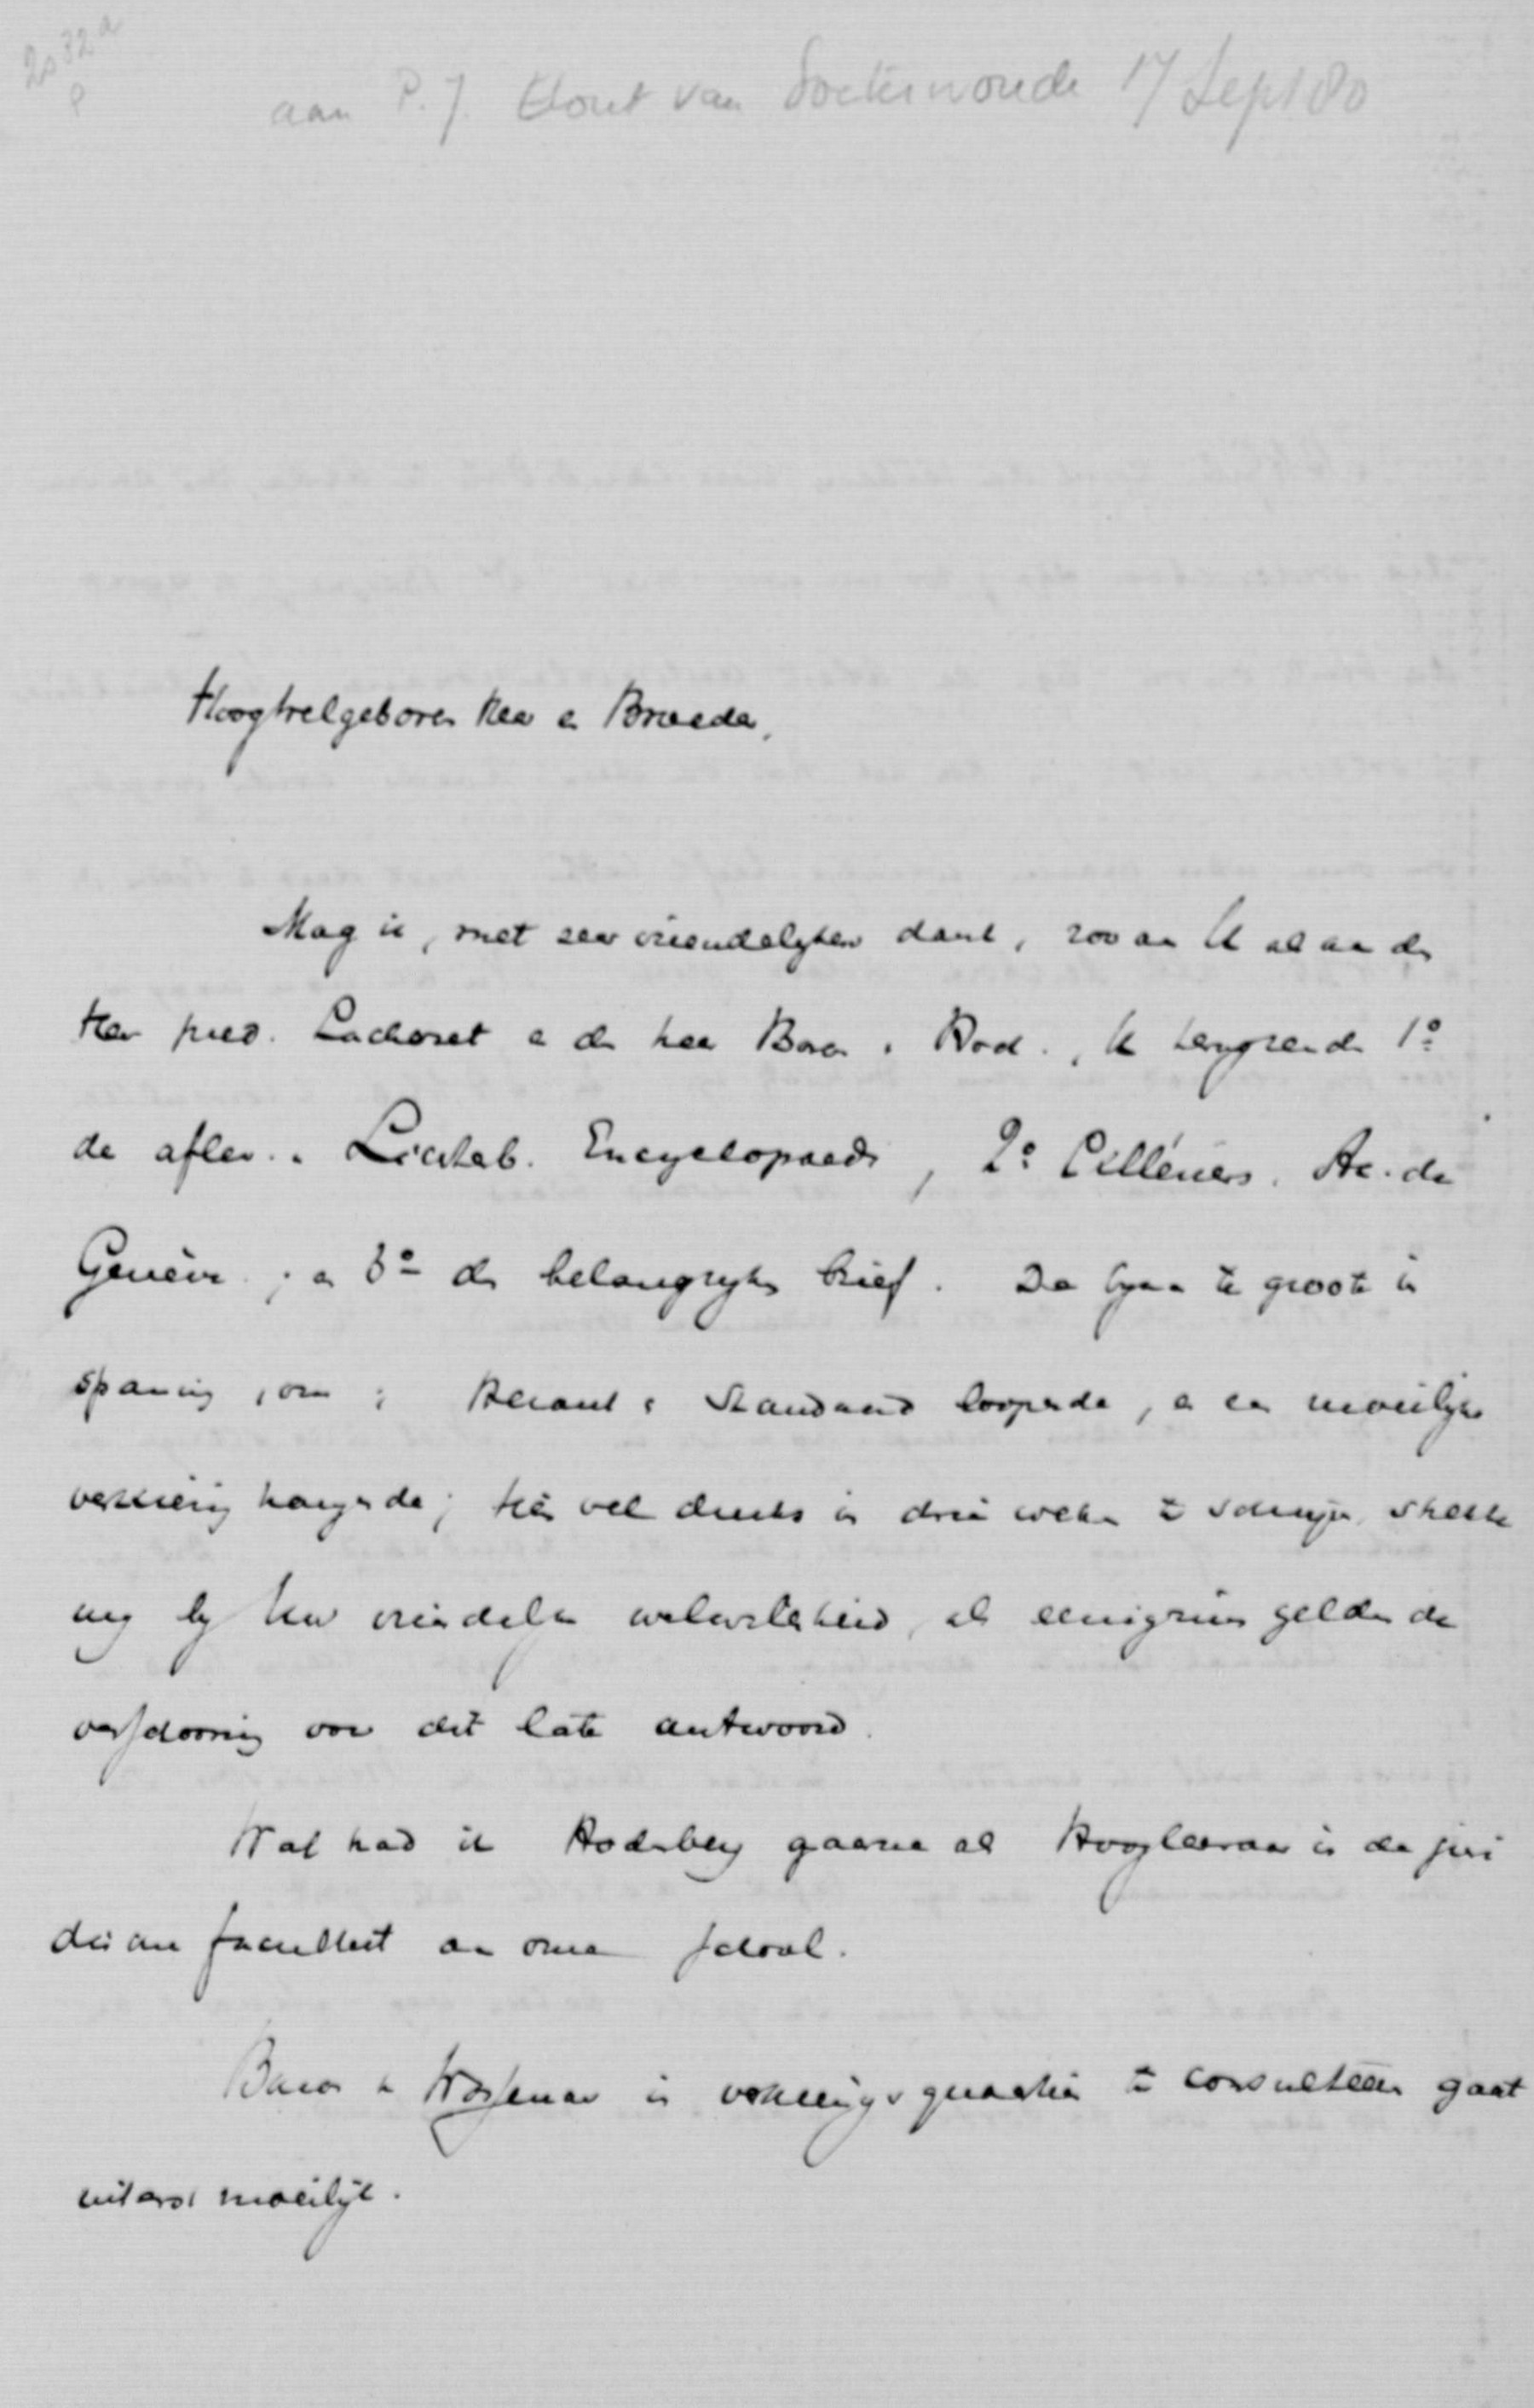 2032a
P
aan P.J. Elout van Soeterwoude 17 Sept 80
Hoogwelgeboren Heer en Broeder,
Mag ik, met zeer vriendelyken dank, zoo aan U als aan den
Heer pred. Lacheret en den heer Baron v. Rod., U terugzenden 1º
de aflev. v. Lichtenb. Encyclopaedie, 2º Cellérier, Ac. de
Genève; en 3º den belangryken brief. De byna te groote in
spanning, om in Heraut en Standaard loopende, en een moeilijke
verkiezing hangende, tien vel druks in drie weken te schrijven, strekke
my by Uw vriendelyke welwillendheid, als eenigzins geldende
verschooning voor dit late antwoord.
Wat had ik Hoderberg gaarne als Hoogleeraar in de juri
dische faculteit aan onze school.
Baron v. Wassenaer in verkiezingsquaestien te consulteeren gaat
uiterst moeilijk.